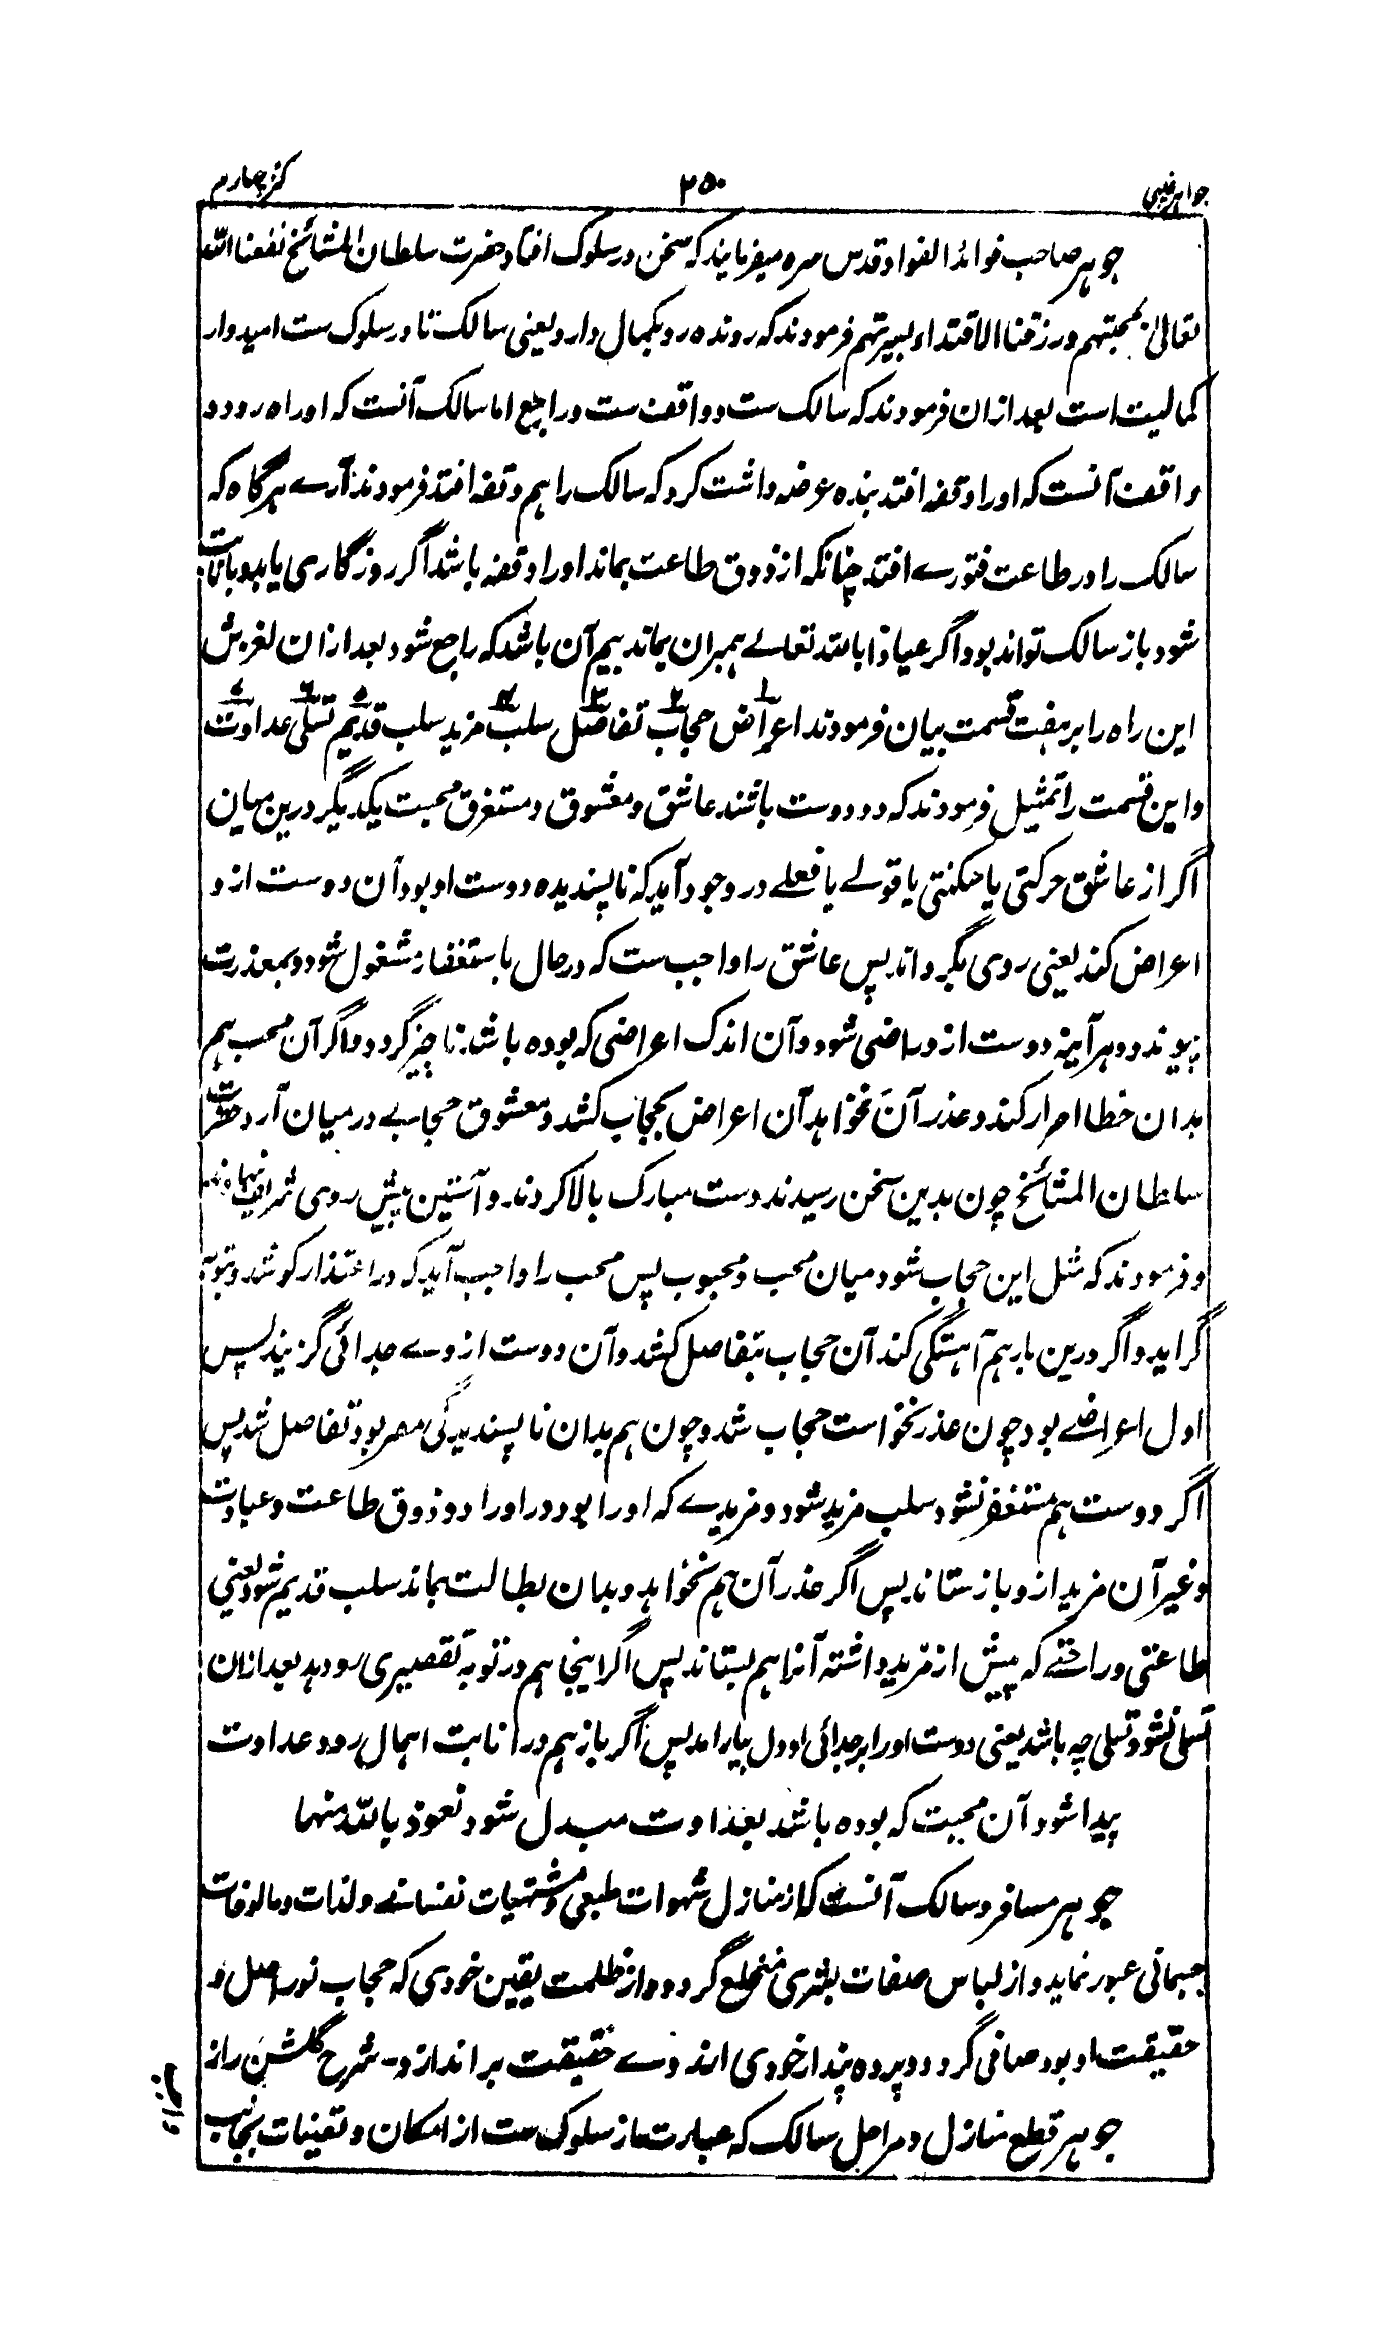 جواہر غیبی
۲۵۰
کنز چهارم
جوہر صاحب فوائد الفواد قدس سره میفرمایند که سخن در سلوک افتاد حضرت سلطان المشائخ نفعنا الله
تعالیٰ بمحبتهم ورزقنا الاقتداء بسیرتهم فرمودند که رونده رو بکمال دارد یعنی سالک تا در سلوک ست امیدوار
کمالیت است بعد ازان فرمودند که سالک ست و واقف ست و راجع اما سالک آنست که او راه رود و
واقف آنست که او را وقفه افتد بنده عرضه داشت کرد که سالک را هم وقفه افتد فرمودند آرے ہرگاہ که
سالک را در طاعت فتورے افتد چنانکه از ذوق طاعت بماند او را وقفه باشد اگر روزگاری یابد و بانابت
شود باز سالک تواند بود و اگر عیاذا بالله تعالے ہمبران بماند بیم آن باشد که راجع شود بعد ازان لغزش
این راه را بر ہفت قسمت بیان فرمودند اعراض حجاب تفاصل سلب مزید سلب قدیم تسلی عداوت
۱ ۲ ۳ ۴ ۵ ۶ ۷
و این قسمت را تمثیل فرمودند که دو دوست باشند عاشق و معشوق و مستغرق محبت یکدیگر درین میان
اگر از عاشق حرکتی یا سکنتی یا قولے یا فعلے در وجود آید که ناپسندیده دوست او بود آن دوست ازو
اعراض کند یعنی روی بگرداند پس عاشق را واجب ست که در حال باستغفار مشغول شود و بمعذرت
پیوندد و ہر آینه دوست ازو راضی شود و آن اندک اعراضی که بوده باشد ناچیز گردد و اگر آن محب ہم
بدان خطا اصرار کند و عذر آن نخواہد آن اعراض بحجاب کشد و معشوق حجابے درمیان آرد حضرت
سلطان المشائخ چون بدین سخن رسیدند دست مبارک بالا کردند و آستین پیش روی شریف نهادند
و فرمودند که مثل این حجاب شود میان محب و محبوب پس محب را واجب آید که در اعتذار کوشد و بتوبه
گراید و اگر درین بار ہم آہستگی کند آن حجاب بتفاصل کشد و آن دوست ازوے جدائی گزیند پس
اول اعراضے بود چون عذر نخواست حجاب شد و چون ہم بدان ناپسندیدگی مصر بود تفاصل شد پس
اگر دوست ہم مستغفر نشود سلب مزید شود و مزیدے که او را بود در اوراد و ذوق طاعت و عبادت
و غیر آن مزید ازو باز ستاند پس اگر عذر آن ہم نخواہد و بدان بطالت بماند سلب قدیم شود یعنی
طاعتی و راحتے که پیش از مزید داشته آنرا ہم بستاند پس اگر اینجا ہم در توبه تقصیری رود بعد ازان
تسلی شود تسلی چه باشد یعنی دوست او را بر جدائی او دل بیارامد پس اگر باز ہم در انابت اہمال رود عداوت
پیدا شود آن محبت که بوده باشد بعداوت مبدل شود نعوذ بالله منها
جوہر مسافر و سالک آنست که از منازل شهوات طبعی و مشتهیات نفسانے و لذات و مالوفات
جسمانی عبور نماید و از لباس صفات بشری منخلع گردد و از ظلمت یقین خودی که حجاب نور اصل و
حقیقت او بود صافی گردد و پرده پندار خودی از روے حقیقت براندازد - شرح گلشن راز
جوہر قطع منازل و مراحل سالک که عبارت از سلوک ست از امکان و تعینات بجانب